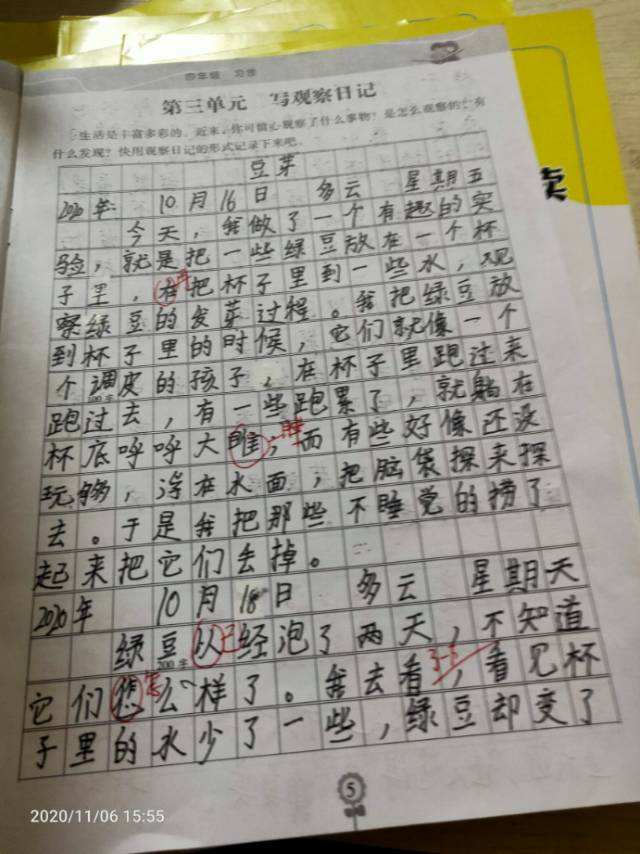 四年级 习作
第三单元 写观察日记
生活是丰富多彩的。近来，你可留心观察了什么事物？是怎么观察的？有
什么发现？快用观察日记的形式记录下来吧。
豆芽
2020年 10月16日 多云 星期五
今天，我做了一个有趣的实
验，就是把一些绿豆放在一个杯
子里，在把杯子里到一些水，观
再
察绿豆的发芽过程。我把绿豆放
到杯子里的时候，它们就像一个
个调皮的孩子，在杯子里跑过来
100字
跑过去，有一些跑累了，就躺在
杯底呼呼大睢，而有些好像还没
睡
玩够，浮在水面，把脑袋探来探
去。于是我把那些不睡觉的捞了
起来把它们丢掉。
2020年 10月18日 多云 星期天
绿豆以经泡了两天，不知道
已
200字
它们怎么样了。我去看，看见杯
怎
子里的水少了一些，绿豆却变了
5
2020/11/06 15:55